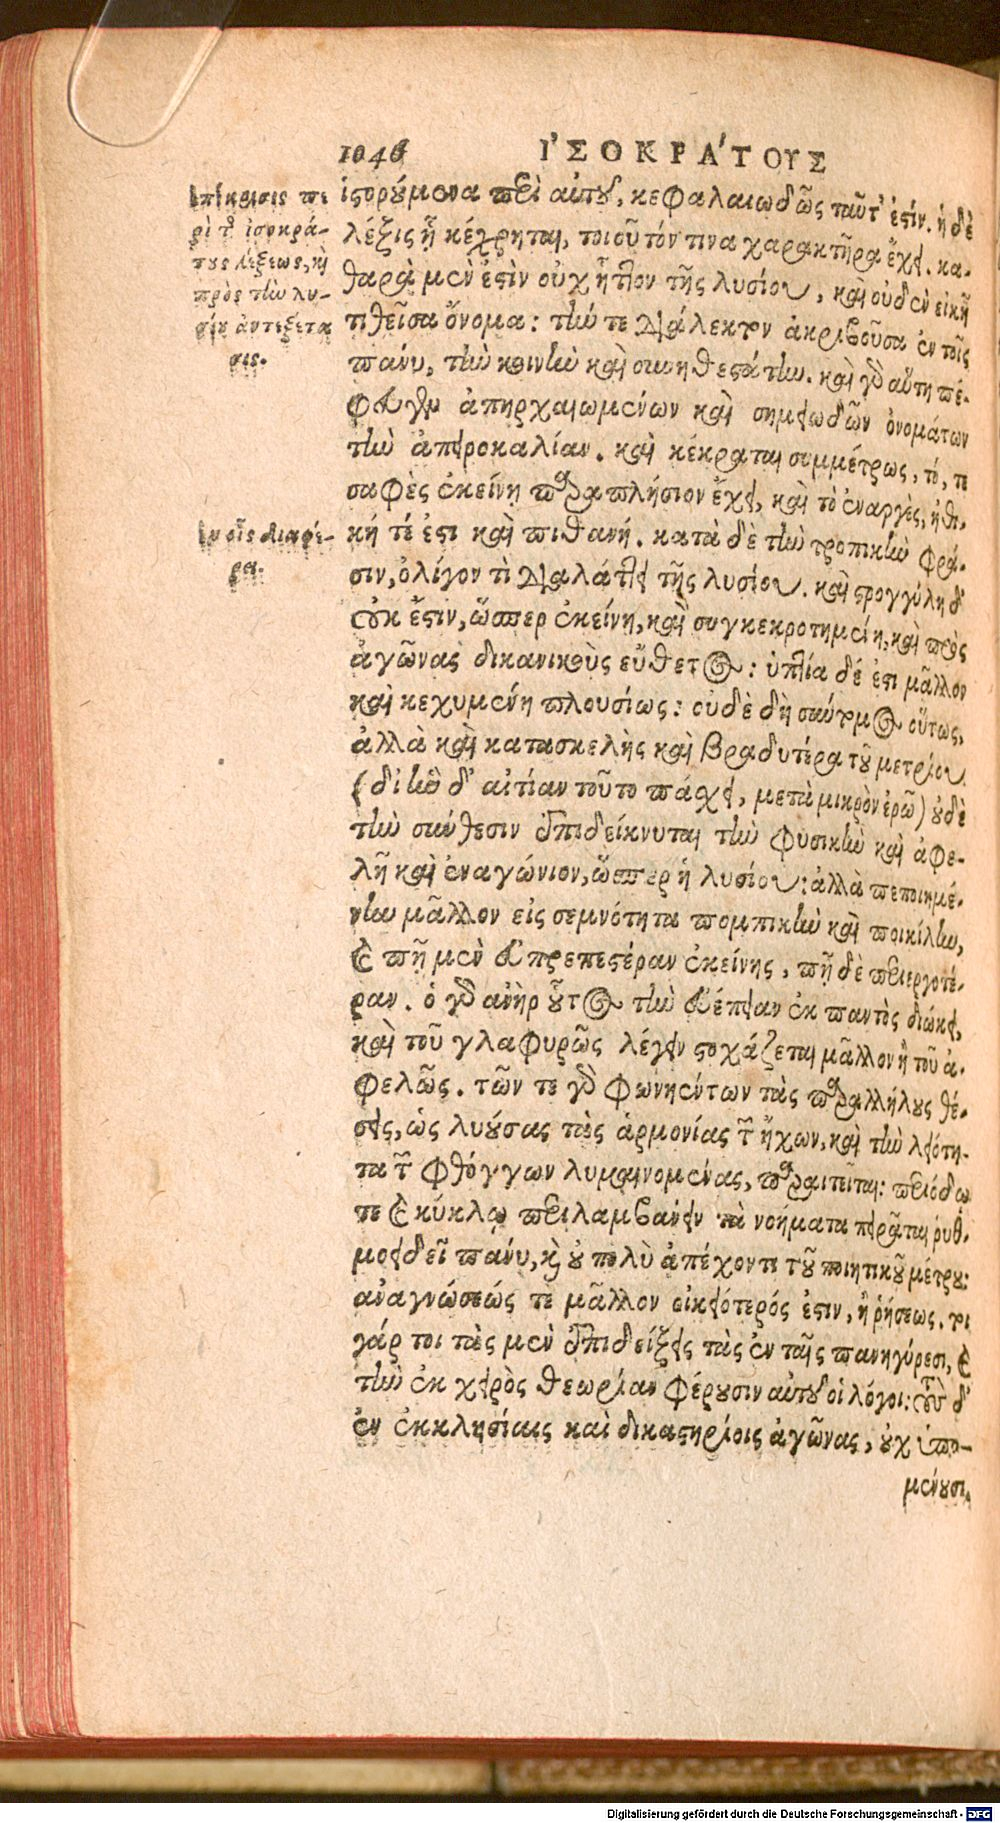 1046 ἸΣΟΚΡΆΤΟΥΣ
ἱστορούμενα περὶ αὐτοῦ, κεφαλαιωδῶς ταῦτ' ἐστίν. ἡ δὲ
λέξις ᾗ κέχρηται, τοιοῦτόν τινα χαρακτῆρα ἔχει. κα-
θαρὰ μὲν ἐστὶν οὐχ ἧττον τῆς λυσίου, καὶ οὐδὲν εἰκῆ
τιθεῖσα ὄνομα: τήν τε διάλεκτον ἀκριβοῦσα ἐν τοῖς
πάνυ, τὴν κοινὴν καὶ συνηθεστάτην. καὶ γὰρ αὕτη πέ-
φευγεν ἀπηρχαιωμένων καὶ σημειωδῶν ὀνομάτων
τὴν ἀπειροκαλίαν. καὶ κέκραται συμμέτρως, τό, τε
σαφὲς ἐκείνῃ παραπλήσιον ἔχει, καὶ τὸ ἐναργὲς, ἠθι-
κή τέ ἐστι καὶ πιθανή. κατὰ δὲ τὴν τροπικὴν φρά-
σιν, ὀλίγον τὶ διαλάττει τῆς λυσίου. καὶ στρογγύλη δ'
οὐκ ἔστιν, ὥσπερ ἐκείνη, καὶ συγκεκροτημένη, καὶ πρὸς
ἀγῶνας δικανικοὺς εὔθετος: ὑπτία δέ ἐστι μᾶλλον
καὶ κεχυμένη πλουσίως: οὐδὲ δὴ σύντομος οὕτως,
ἀλλὰ καὶ κατασκελὴς καὶ βραδυτέρα τοῦ μετρίου
(δι' ἣν δ' αἰτίαν τοῦτο πάχει, μετὰ μικρὸν ἐρῶ) οὐδὲ
τὴν σύνθεσιν ἐπιδείκνυται τὴν φυσικὴν καὶ ἀφε-
λῆ καὶ ἐναγώνιον, ὥσπερ ἡ λυσίου: ἀλλὰ πεποιημέ-
νην μᾶλλον εἰς σεμνότητα πομπικὴν καὶ ποικίλην,
καὶ πῆ μὲν εὐπρεπεστέραν ἐκείνης, πῆ δὲ περιεργοτέ-
ραν. ὁ γὰρ ἀνὴρ οὗτος τὴν εὐέπειαν ἐκ παντὸς διώκει,
καὶ τοῦ γλαφυρῶς λέγειν στοχάζεται μᾶλλον ἢ τοῦ ἀ-
φελῶς. τῶν τε γὰρ φωνηέντων τὰς παραλλήλους θέ-
σεις, ὡς λυούσας τὰς ἁρμονίας τῶν ἤχων, καὶ τὴν λειότη-
τα τῶν φθόγγων λυμαινομένας, παραιτεῖται: περιόδῳ
τε καὶ κύκλῳ περιλαμβάνειν τὰ νοήματα πειρᾶται ῥυθ-
μοειδεῖ πάνυ, καὶ οὐ πολὺ ἀπέχοντι τοῦ ποιητικοῦ μέτρου:
ἀναγνώσεώς τε μᾶλλον οἰκειότερός ἐστιν, ἢ ῥήσεως. τοι
γάρ τοι τὰς μὲν ἐπιδείξεις τὰς ἐν ταῖς πανηγύρεσι, καὶ
τὴν ἐκ χειρὸς θεωρίαν φέρουσιν αὐτοῦ οἱ λόγοι: τοὺς δ'
ἐν ἐκκλησίαις καὶ δικαστηρίοις ἀγῶνας, οὐχ ὑπο-
μένουσι,
ἐπίκρισις πε
ρὶ τῆς ἰσοκρά-
τους λέξεως, καὶ
πρὸς τὴν λυ-
σίου ἀντεξέτα
σις.
ἐν οἷς διαφέ-
ρει.
Digitalisierung gefördert durch die Deutsche Forschungsgemeinschaft - DFG